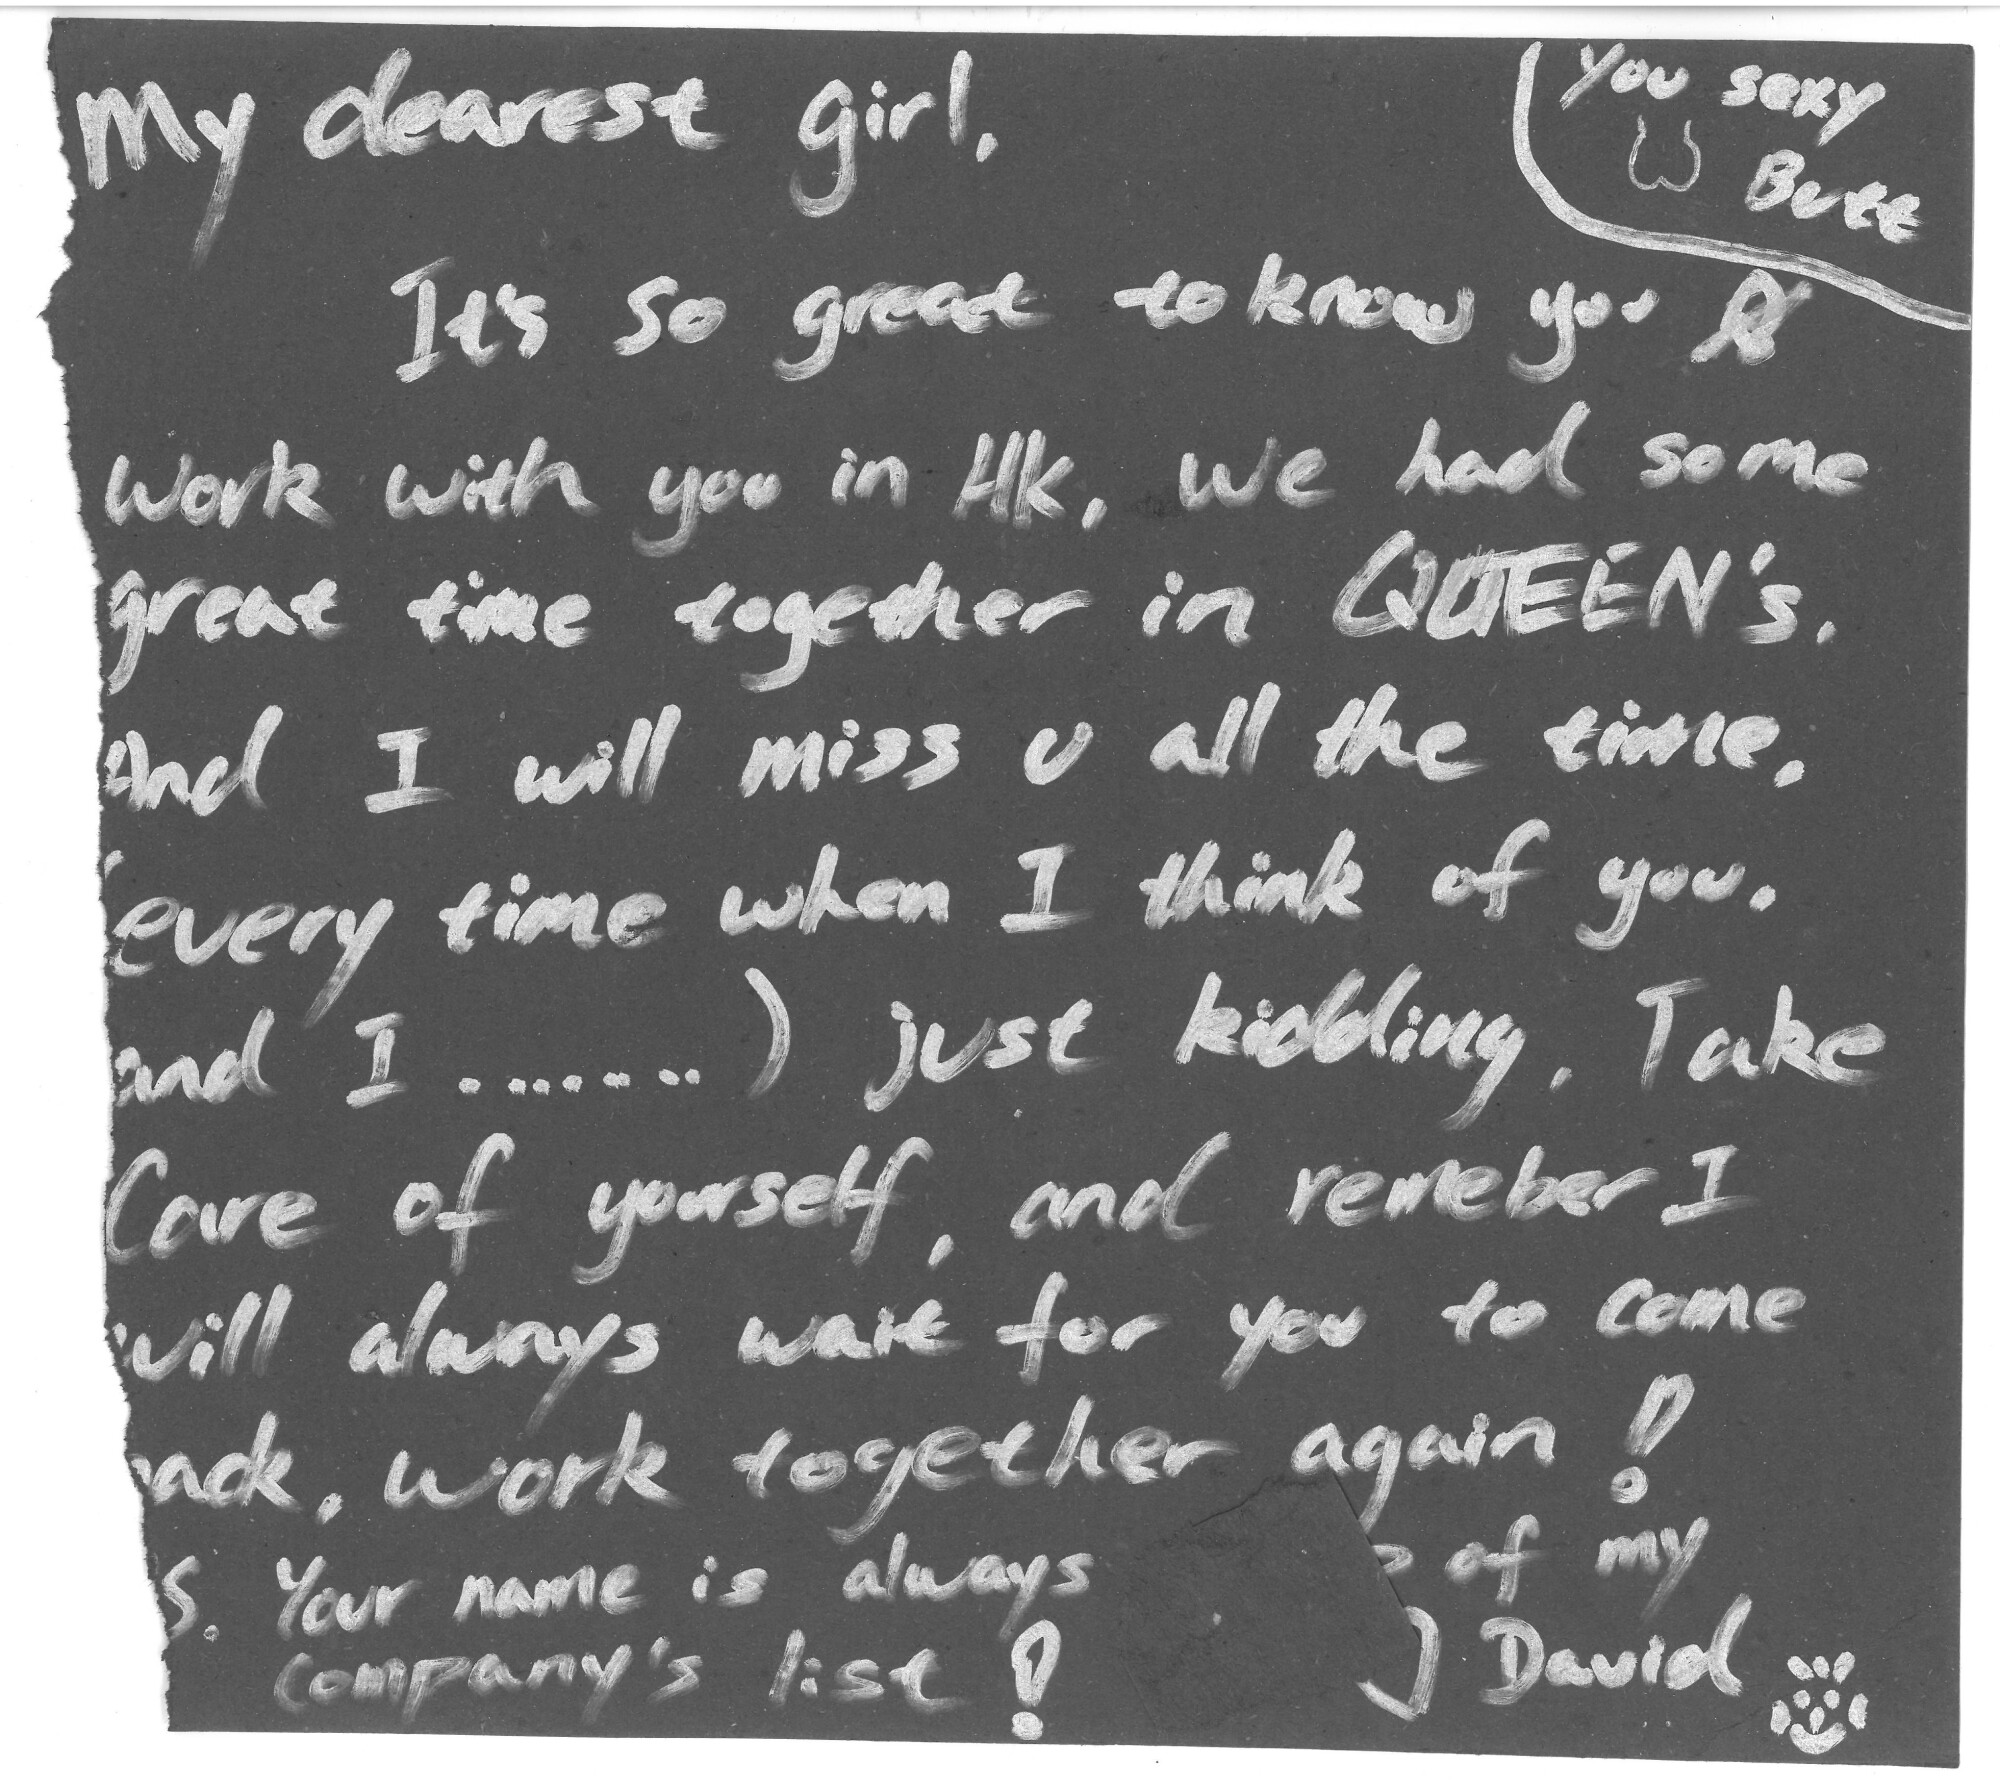 My dearest girl,
You sexy
Butt
It's so great to know you &
Work with you in HK, We had some
great time together in QUEEN's.
And I will miss u all the time,
(every time when I think of you.
and I .......) just kidding, Take
Care of yourself, and remeber I
will always wait for you to come
back, work together again!
S. Your name is always of my
company's list! David